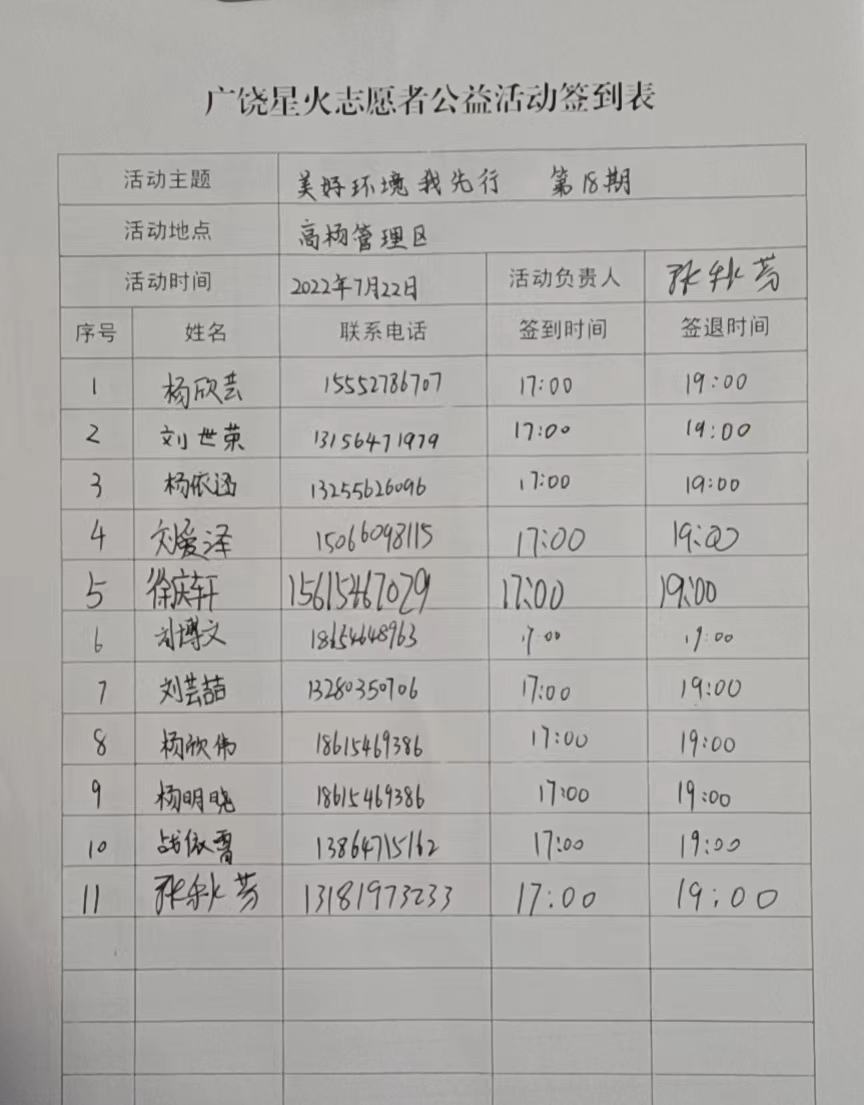 广饶星火志愿者公益活动签到表
活动主题 美好环境我先行 第18期
活动地点 高杨管理区
活动时间 2022年7月22日 活动负责人 张秋芳
序号 姓名 联系电话 签到时间 签退时间
1 杨欣芸 15552786707 17:00 19:00
2 刘世荣 13156471979 17:00 19:00
3 杨依涵 13255626096 17:00 19:00
4 刘爱泽 15066098115 17:00 19:00
5 徐庆轩 15615467029 17:00 19:00
6 刘博文 18654648963 17:00 19:00
7 刘芸喆 13280350706 17:00 19:00
8 杨欣伟 18615469386 17:00 19:00
9 杨明晓 18615469386 17:00 19:00
10 13864715162 17:00 19:00
11 张秋芳 13181973233 17:00 19:00